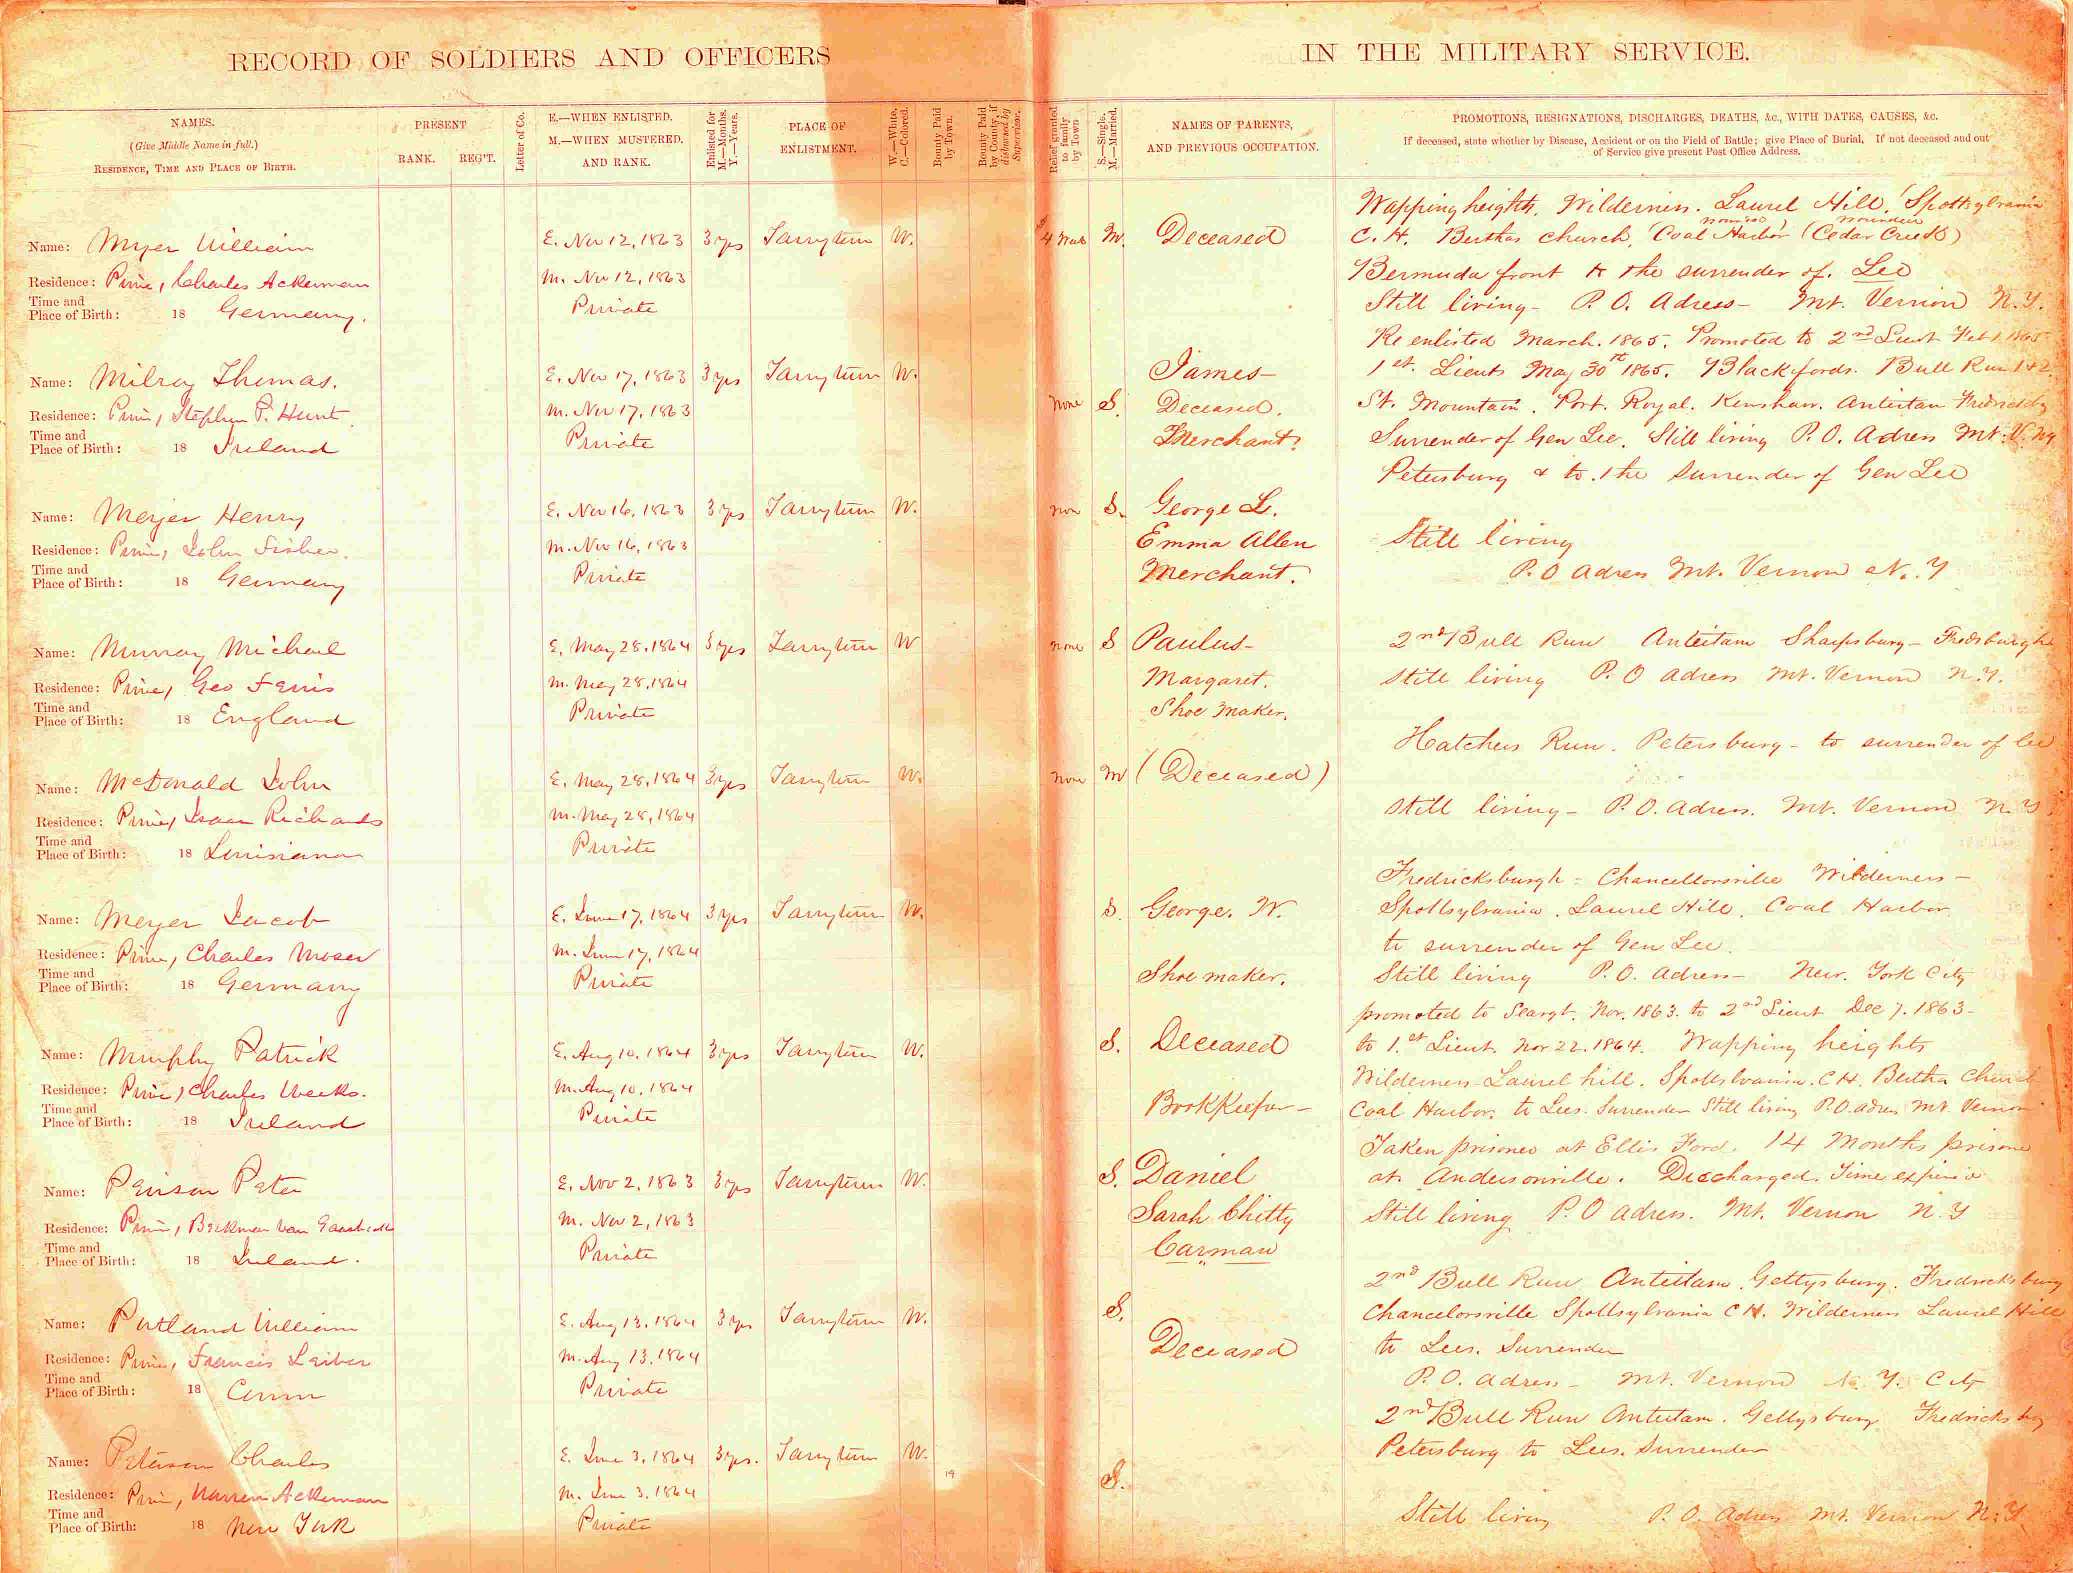 RECORD OF SOLDIERS AND OFFICERS
IN THE MILITARY SERVICE.
NAMES.
(Give Middle Name in full.)
RESIDENCE, TIME AND PLACE OF BIRTH.
PRESENT
RANK. REG'T.
Letter of Co.
E.—WHEN ENLISTED.
M.—WHEN MUSTERED.
AND RANK.
Enlisted for
M.—Months.
Y.—Years.
PLACE OF
ENLISTMENT.
W.—White.
C.—Colored.
Bounty Paid
by Town.
Bounty Paid
by County, if
disbursed by
Supervisor.
Relief granted
to family
by Town
S.—Single.
M.—Married.
NAMES OF PARENTS,
AND PREVIOUS OCCUPATION.
PROMOTIONS, RESIGNATIONS, DISCHARGES, DEATHS, &c., WITH DATES, CAUSES, &c.
If deceased, state whether by Disease, Accident or on the Field of Battle; give Place of Burial. If not deceased and out
of Service give present Post Office Address.
Name: Myer William E. Nov 12, 1863 3 yrs Tarrytown W.
Residence: Prin, Charles Ackerman M. Nov 12, 1863
Time and
Place of Birth: 18 Germany. Private
Name: Milroy Thomas. E. Nov 17, 1863 3 yrs Tarrytown W.
Residence: Prin, Stephen P. Hunt M. Nov 17, 1863
Time and
Place of Birth: 18 Ireland Private
Name: Meyer Henry E. Nov 16, 1863 3 yrs Tarrytown W.
Residence: Prin, John Fisher. M. Nov 16, 1863
Time and
Place of Birth: 18 Germany Private
Name: Murray Michael E. May 28, 1864 3 yrs Tarrytown W
Residence: Prin, Geo Ferris M. May 28, 1864
Time and
Place of Birth: 18 England Private
Name: McDonald John E. May 28, 1864 3 yrs Tarrytown W.
Residence: Prin, Isaac Richards M. May 28, 1864
Time and
Place of Birth: 18 Louisiana Private
Name: Meyer Jacob E. June 17, 1864 3 yrs Tarrytown W.
Residence: Prin, Charles Moser M. June 17, 1864
Time and
Place of Birth: 18 Germany Private
Name: Murphy Patrick E. Aug 10, 1864 3 yrs Tarrytown W.
Residence: Prin, Charles Weeks. M. Aug 10, 1864
Time and
Place of Birth: 18 Ireland Private
Name: Peter E. Nov 2, 1863 3 yrs Tarrytown W.
Residence: Prin, Beekman Van M. Nov 2, 1863
Time and
Place of Birth: 18 Ireland. Private
Name: William E. Aug 13, 1864 3 yrs Tarrytown W.
Residence: Prin, Francis Leiber M. Aug 13, 1864
Time and
Place of Birth: 18 Conn Private
Name: Peterson Charles E. June 3, 1864 3 yrs. Tarrytown W.
19
Residence: Prin, Warren Ackerman M. June 3, 1864
Time and
Place of Birth: 18 New York Private
Wapping heights, Wilderness. Laurel Hill, Spottsylvania
wounded wounded
M. Deceased C. H. Berthas church, Coal Harbor (Cedar Creek)
Bermuda front to the surrender of. Lee
Still living - P. O. Adress - Mt. Vernon N.Y.
Re enlisted March. 1865. Promoted to 2nd Lieut Feb 1 1865
James - 1st. Lieut May 30 1865. Blackfords. Bull Run 1 & 2
none S. Deceased. St. Mountain. Port. Royal. Kenshaw. Antietam
Merchant. Surrender of Gen Lee. Still living P. O. Adress Mt. V. Ny
Petersburg & to. the Surrender of Gen Lee
S. George L.
Emma Allen Still living
Merchant. P. O adress Mt. Vernon N. Y
none S Paulus - 2nd Bull Run Antietam Sharpsburg - Fredsburgh
Margaret. still living P. O adress Mt. Vernon N.Y.
Shoe maker.
Hatchers Run. Petersburg - to surrender of lee
none M (Deceased)
still living - P. O. adress. Mt. Vernon N. Y.
Fredricksburgh - Chancellorsville Wilderness -
S. George. W. Spottsylvania. Laurel Hill. Coal Harbor
to surrender of Gen Lee.
Shoe maker. Still living P. O. adress - New. York City
promoted to Seargt. Nov. 1863. to 2nd Lieut Dec 7. 1863 -
S. Deceased to 1.st Lieut. Nov 22. 1864. Wapping heights
Wilderness - Laurel hill. C H. Bertha Church
Bookkeeper - Coal Harbor. to Lees. Surrender Still living P. O. adres Mt Vernon
Taken prisoner at Ellis Ford. 14 Months prisone
S. Daniel at Andersonville. Discharged. Time
Sarah Chitty Still living P. O adress. Mt. Vernon N. Y
Carman
2nd Bull Run Antietam. Gettysburg. Fredricksburg
S. Chancelorsville Spottsylvania C H. Wilderness Laurel Hill
Deceased to Lees. Surrender
P. O. adress - Mt. Vernon N. Y. City
2nd Bull Run Antietam. Gettysburg
Petersburg to Lees. Surrender
S.
Still living P. O. adress Mt. Vernon N. Y